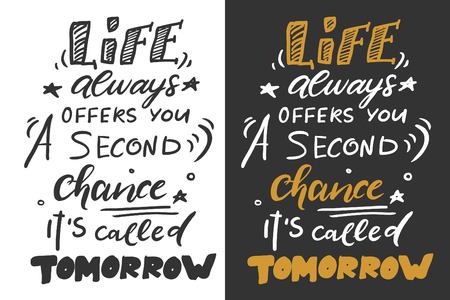 LiFE
always
OFFERS YOU
A SECOND
chance
iT'S called
TOMORROW
LiFE
always
OFFERS YOU
A SECOND
chance
iT'S called
TOMORROW